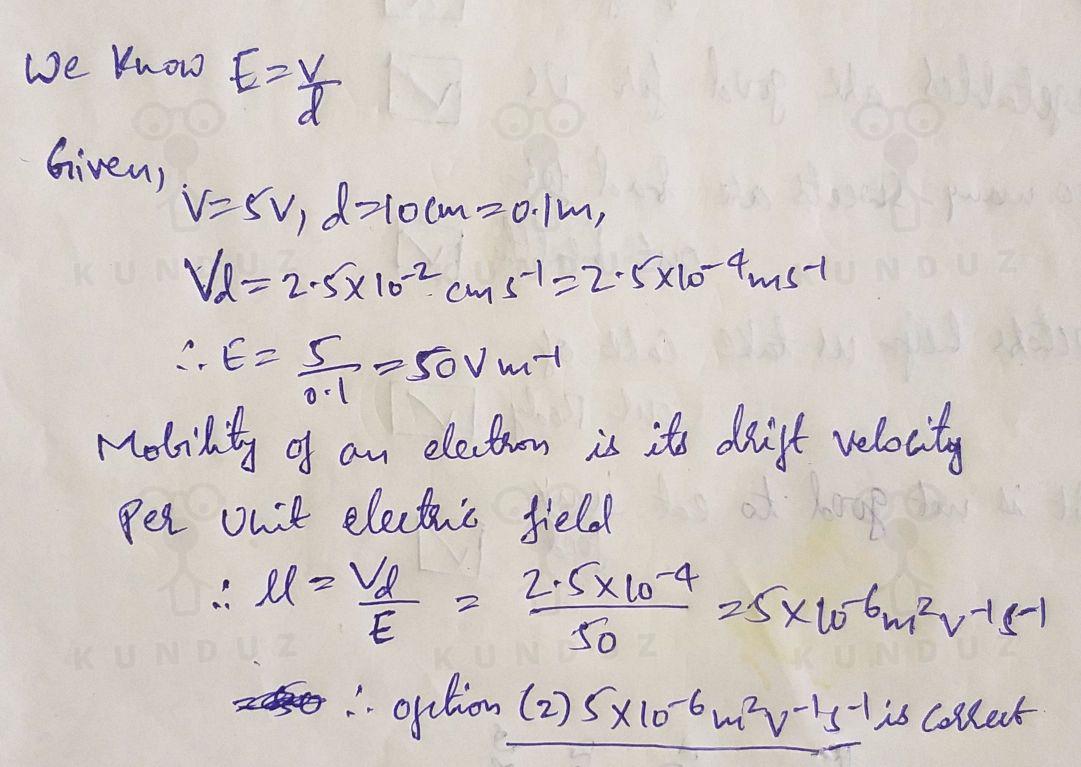 We know E = V/d
Given,
V = 5V, d = 10cm = 0.1m,
Vd = 2.5 × 10⁻² cm s⁻¹ = 2.5 × 10⁻⁴ ms⁻¹
∴ E = 5/0.1 = 50 V m⁻¹
Mobility of an electron is its drift velocity
Per unit electric field
∴ μ = Vd/E = 2.5 × 10⁻⁴/50 = 5 × 10⁻⁶ m² v⁻¹ s⁻¹
∴ option (2) 5 × 10⁻⁶ m² v⁻¹ s⁻¹ is correct
KUNDUZ
KUNDUZ
KUNDUZ
KUNDUZ
KUNDUZ